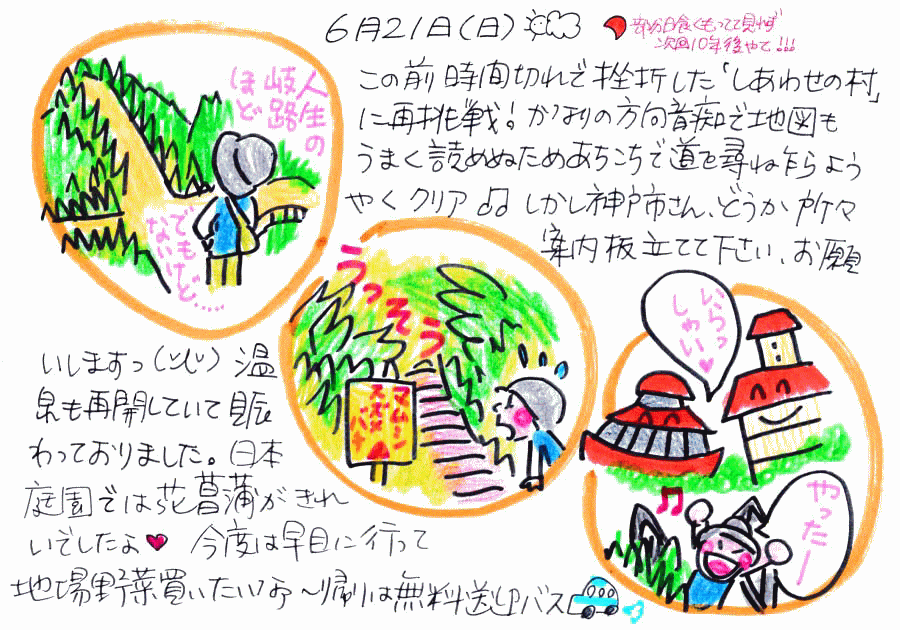 6月21日(日)
部分日食くもってて見れず
次回10年後やて!!!
この前時間切れで挫折した「しあわせの村」
に再挑戦!かなりの方向音痴で地図も
うまく読めぬためあちこちで道を尋ね乍らよう
やくクリア しかし神戸市さん、どうか所々
案内板立てて下さい、お願
いしますっ 温
泉も再開していて賑
わっておりました。日本
庭園では花菖蒲がきれ
いでしたよ♥ 今度は早目に行って
地場野菜買いたいなァ~帰りは無料送迎バス
人生の
岐路
ほど
でも
ないけど……
うっそう
マムシ
スズメ
バチ
いらっ
しゃい♥
やったー